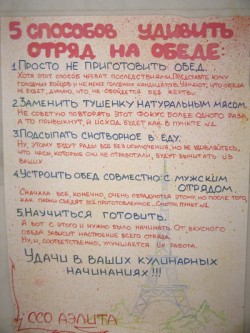 5 СПОСОБОВ УДИВИТЬ
ОТРЯД НА ОБЕДЕ:
1. ПРОСТО НЕ ПРИГОТОВИТЬ ОБЕД.
ХОТЯ ЭТОТ СПОСОБ ЧРЕВАТ ПОСЛЕДСТВИЯМИ. ПРЕДСТАВЬТЕ КУЧУ
ГОЛОДНЫХ БОЙЦОВ И НЕ МЕНЕЕ ГОЛОДНЫХ КАНДИДАТОВ. УЗНАЮТ, ЧТО ОБЕДА
НЕ БУДЕТ, ДУМАЮ, ЧТО НЕ ОБОЙДЕТСЯ БЕЗ ЖЕРТВ.
2. ЗАМЕНИТЬ ТУШЕНКУ НАТУРАЛЬНЫМ МЯСОМ.
НЕ СОВЕТУЮ ПОВТОРЯТЬ ЭТОТ ФОКУС БОЛЕЕ ОДНОГО РАЗА,
А ТО ПРИВЫКНУТ, И ИСХОД БУДЕТ КАК В ПУНКТЕ №1.
3. ПОДСЫПАТЬ СНОТВОРНОЕ В ЕДУ.
НУ, ЭТОМУ БУДУТ РАДЫ ВСЕ БЕЗ ИСКЛЮЧЕНИЯ, НО НЕ УДИВЛЯЙТЕСЬ,
ЧТО ЧАСЫ, КОТОРЫЕ ОНИ НЕ ОТРАБОТАЛИ, БУДУТ ВЫЧИТАТЬ ИЗ
ВАШИХ.
4. УСТРОИТЬ ОБЕД СОВМЕСТНО С МУЖСКИМ
ОТРЯДОМ.
СНАЧАЛА ВСЕ, КОНЕЧНО, ОЧЕНЬ ОБРАДУЮТСЯ ЭТОМУ, НО ПОСЛЕ ТОГО,
КАК ПАРНИ СЪЕДЯТ ВСЕ ПРИГОТОВЛЕННОЕ... СМОТРИ ПУНКТ №1.
5. НАУЧИТЬСЯ ГОТОВИТЬ.
А ВОТ С ЭТОГО И НУЖНО БЫЛО НАЧИНАТЬ. ОТ ВКУСНОГО
ОБЕДА ЗАВИСИТ НАСТРОЕНИЕ ВСЕГО ОТРЯДА.
НУ, И, СООТВЕТСТВЕННО, УЛУЧШАЕТСЯ ИХ РАБОТА.
УДАЧИ В ВАШИХ КУЛИНАРНЫХ
НАЧИНАНИЯХ!!!
ССО АЭЛИТА